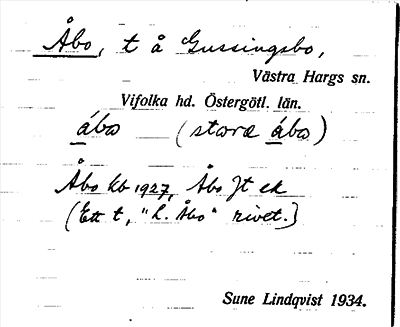 Åbo, t å Gussingsbo,
Västra Hargs sn.
Vifolka hd. Östergötl. län.
ábo (stora ábo)
Åbo kb 1927, Åbo Jt ek
(Ett t, "L. Åbo" rivet.)
Sune Lindqvist 1934.